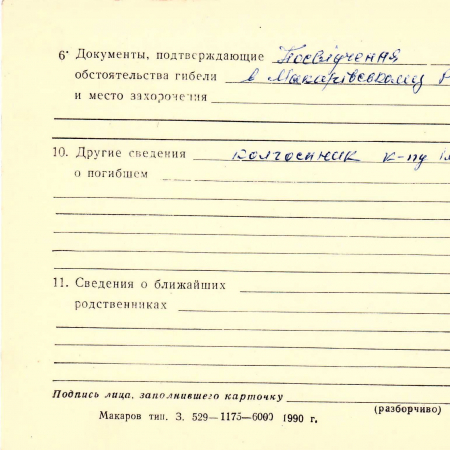 6• Документы, подтверждающие Посвідчення
обстоятельства гибели в Макарівському Р
и место захоронения
10. Другие сведения колгоспник к-пу
о погибшем
11. Сведения о ближайших
родственниках
Подпись лица, заполнившего карточку
(разборчиво)
Макаров тип. З. 529—1175—6000 1990 г.